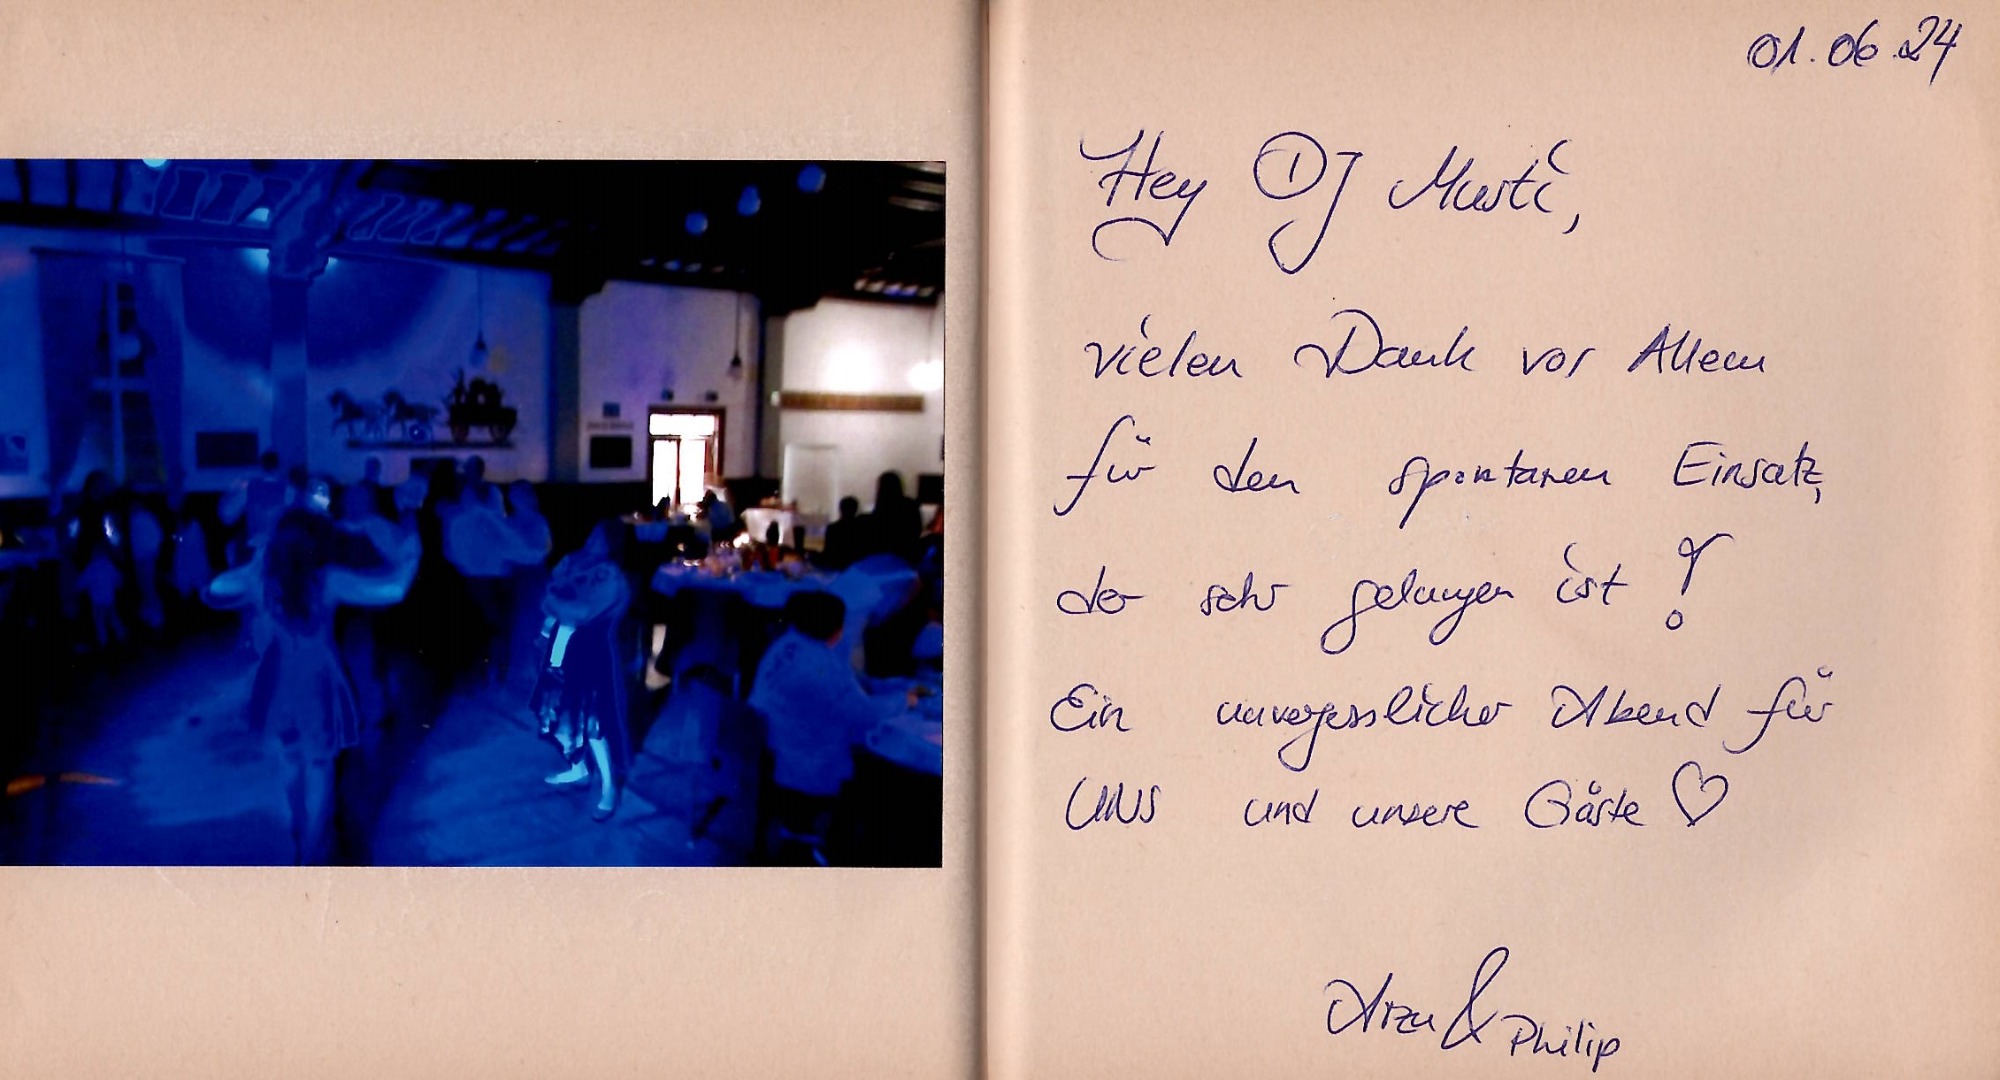 01.06.24
Hey DJ Musti,
vielen Dank vor Allem
für den spontanen Einsatz,
der sehr gelungen ist!
Ein unvergesslicher Abend für
UNS und unsere Gäste ♡
Arzu & Philip